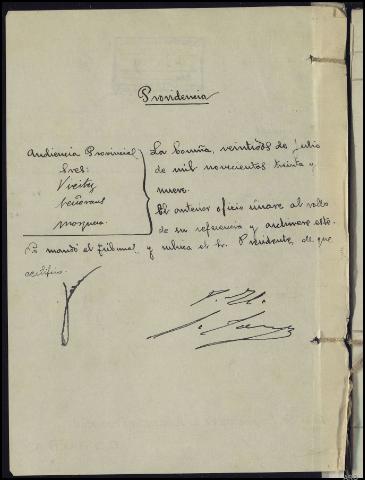 Providencia
Audiencia Provincial
Sres:
La Coruña, veintidós de Julio
de mil novecientos treinta y
nueve.
El anterior oficio únase al rollo
de su referencia y archívese éste.
Lo mandó el Tribunal y rubrica el Sr. Presidente, de que
certifico.